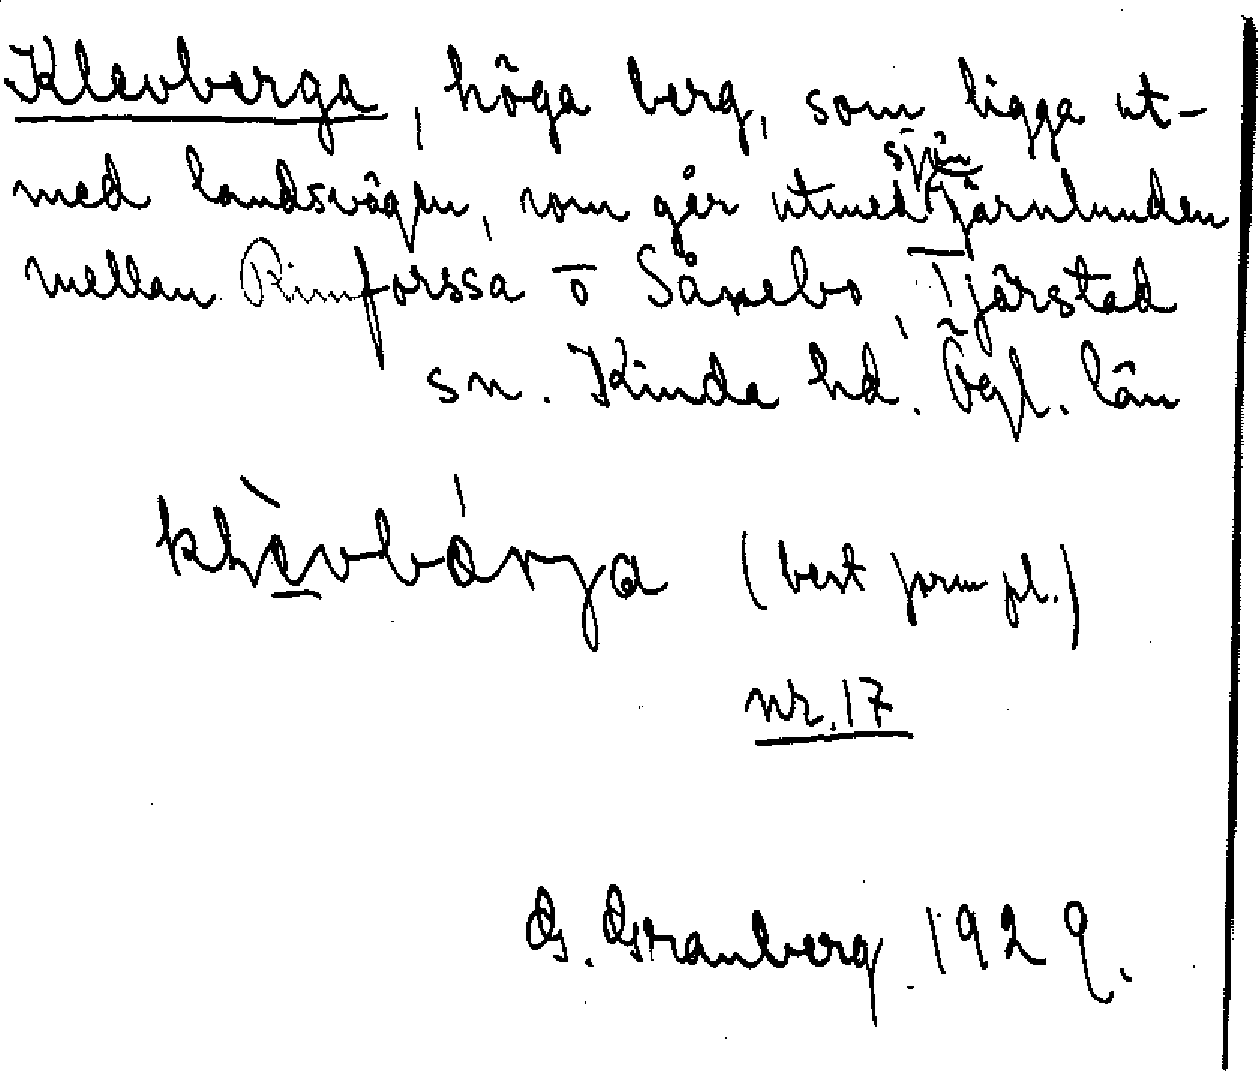 Klevberga, höga berg, som ligga ut-
med landsvägen, som går utmed sjön Järnlunden
mellan Rimforssa o Sånebo, Tjärstad
sn. Kinda hd. Ögl. län
(best form pl.)
nr. 17
G. Granberg 1929.